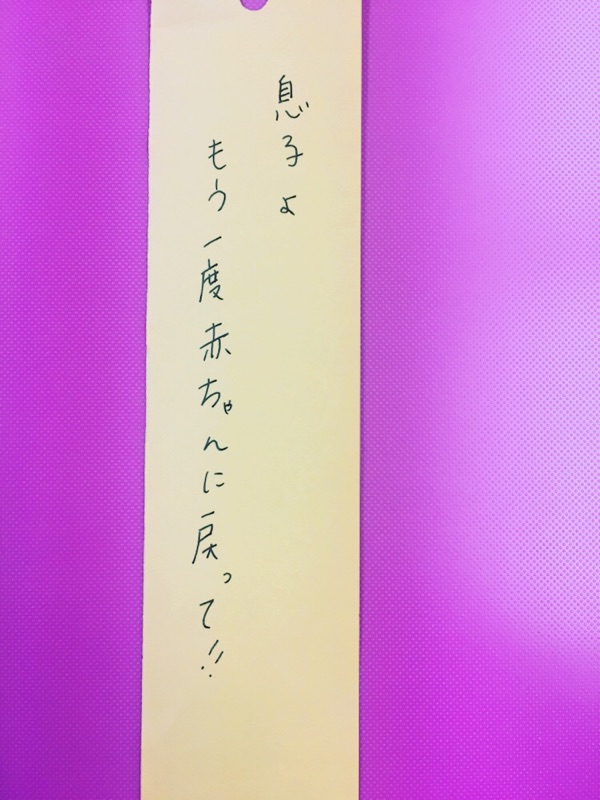 息子よ
もう一度赤ちゃんに戻って!!